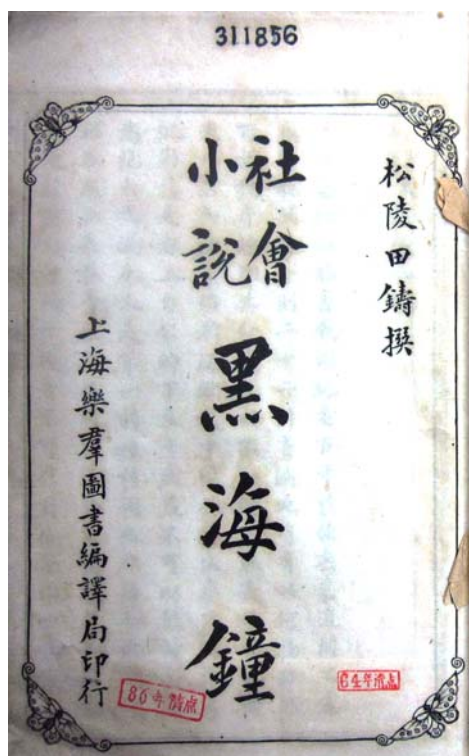 311856
松陵田鑄撰
社會
小説
黑海鐘
上海樂羣圖書編譯局印行
64年清点
86年清点